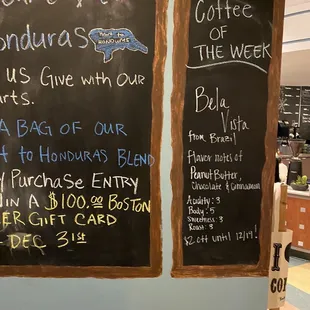 onduras
US Give with Our
arts.
A BAG OF OUR
t to Honduras BLEND
y Purchase ENTRY
IN A $100.00 Boston
ER GIFT CARD
DEC 31st
Coffee
OF
THE WEEK
Bela
Vista
from Brazil
Flavor notes of
Peanut Butter,
Chocolate & Cinnamon
Acidity: 3
Body: 5
Sweetness: 3
Roast: 3
$2 off until 12/14!
I
CO